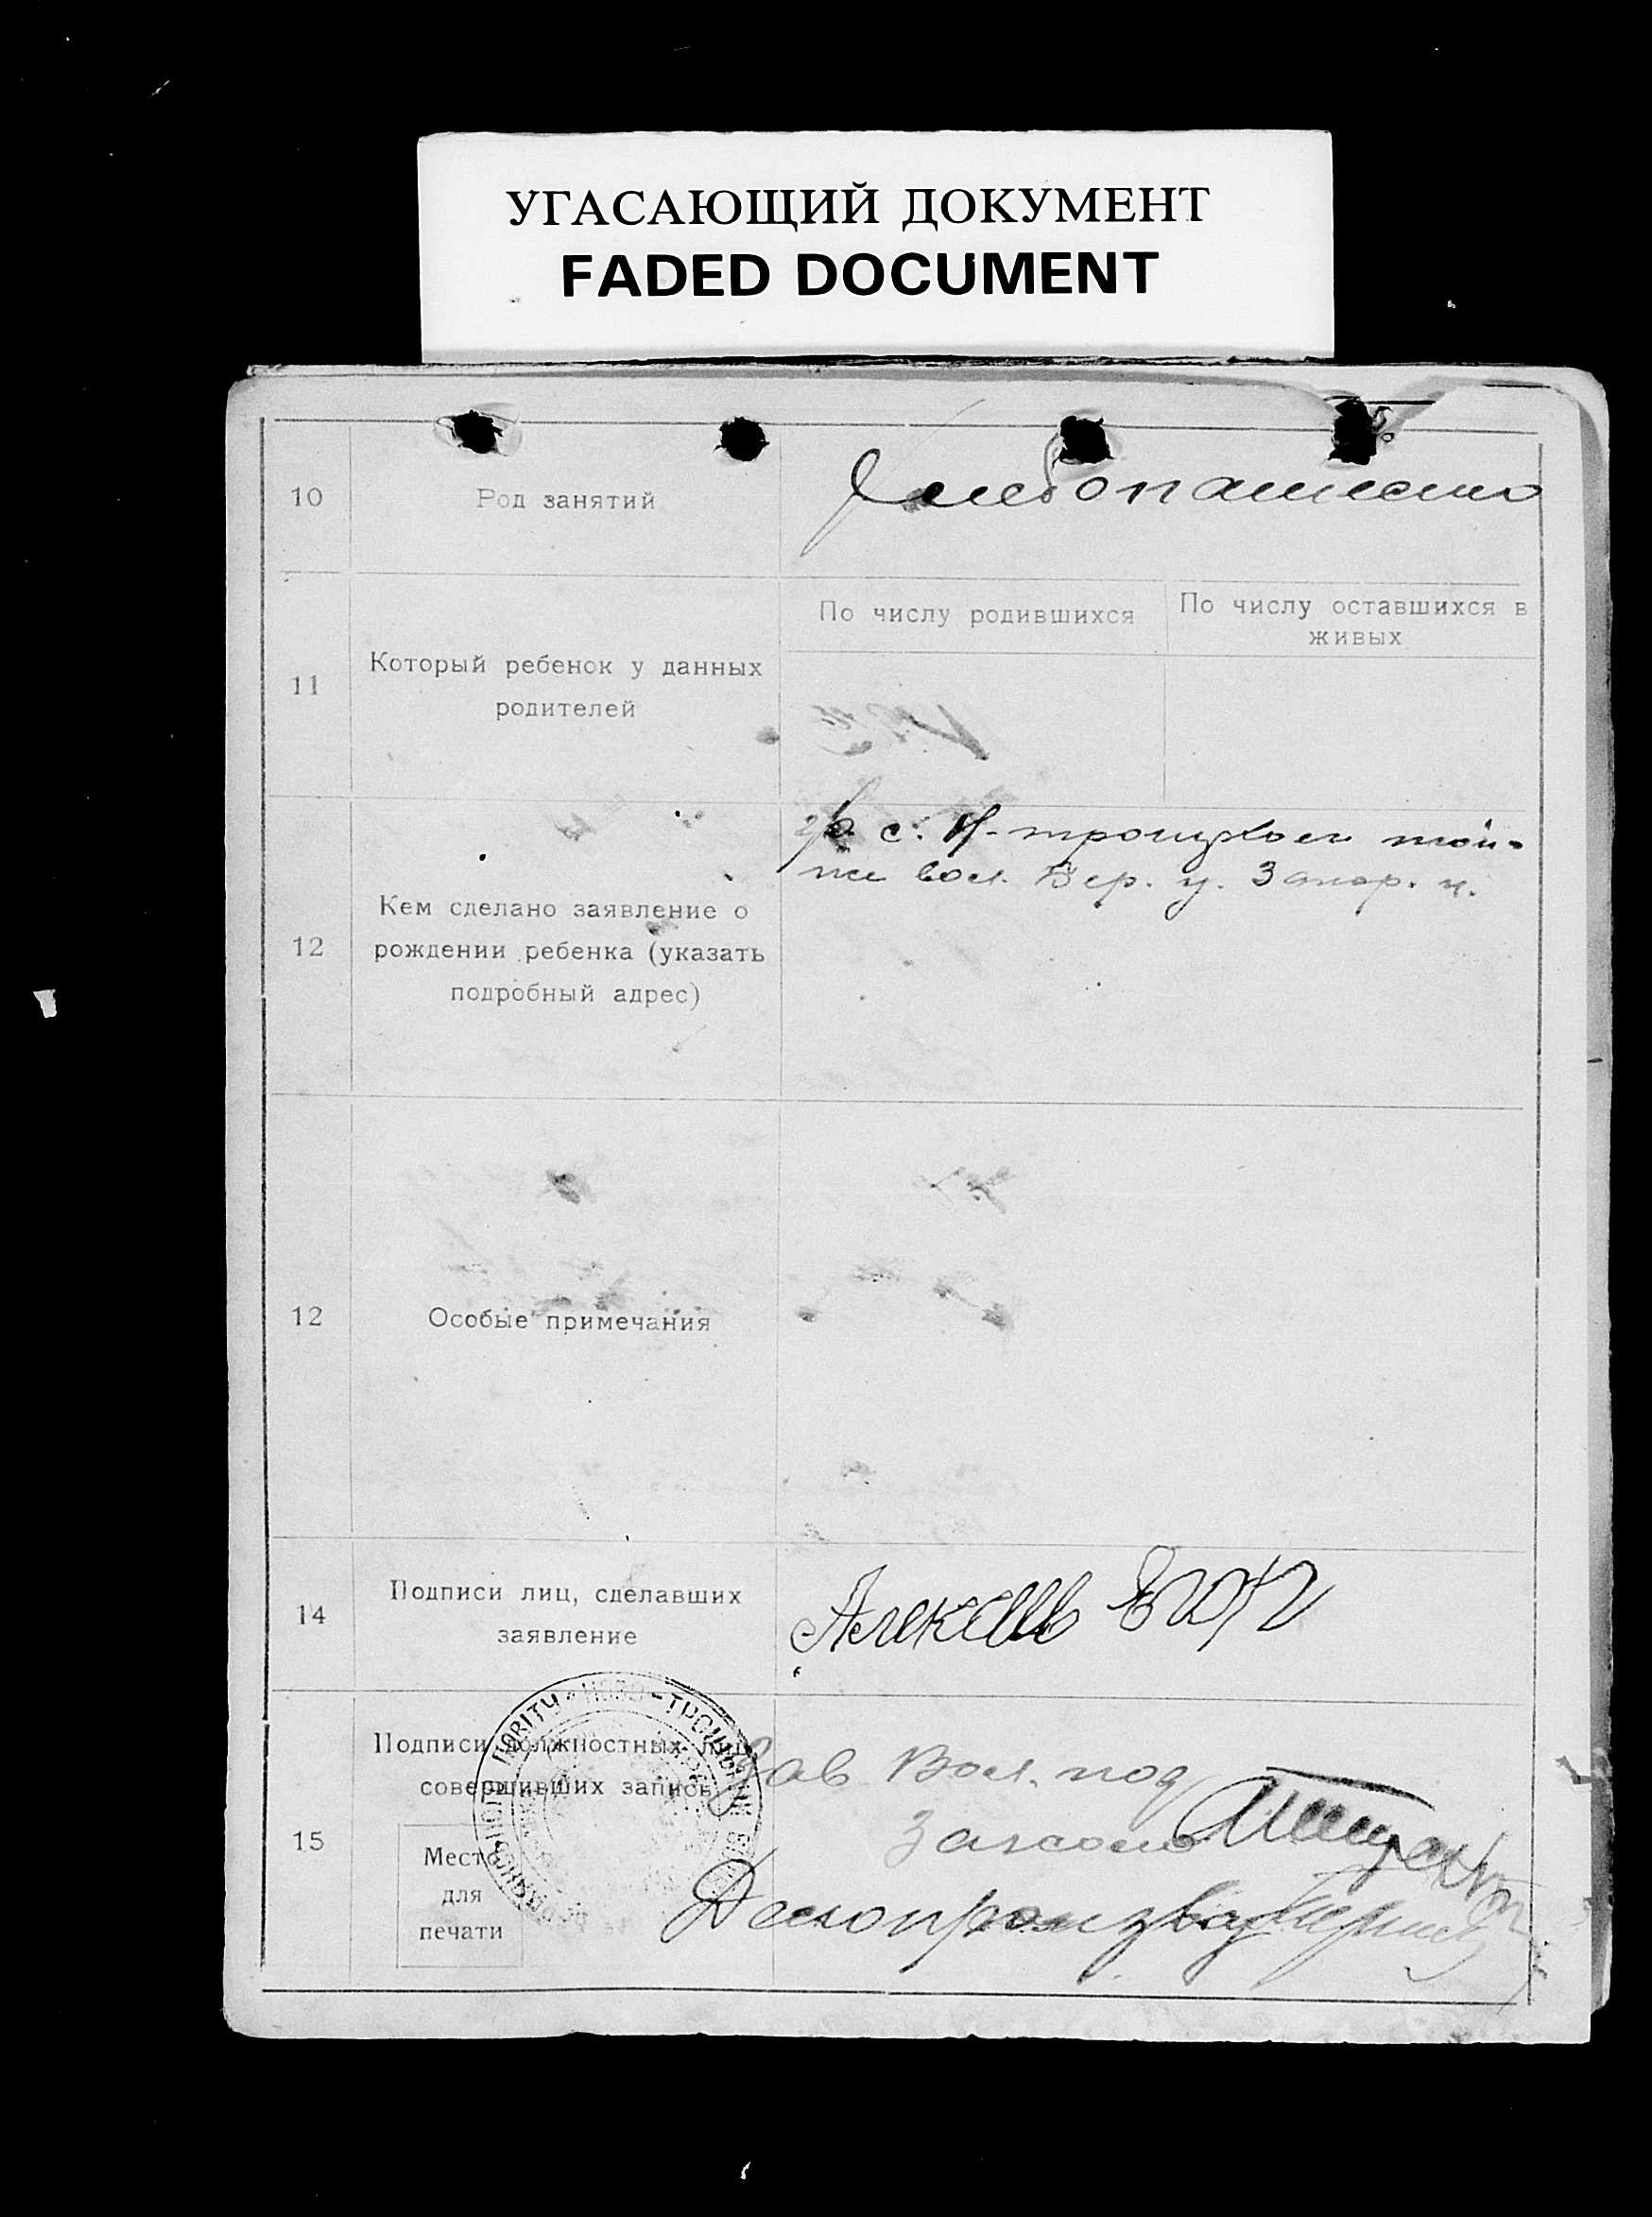 УГАСАЮЩИЙ ДОКУМЕНТ
FADED DOCUMENT
10
Род занятий
Хлебопашество
11
Который ребенок у данных
родителей
По числу родившихся
По числу оставшихся в
живых
12
Кем сделано заявление о
рождении ребенка (указать
подробный адрес)
гр. с. Н-троицкое той-
же вол. Бер. у. Запор. г.
12
Особые примечания
14
Подписи лиц, сделавших
заявление
Алексей
15
Подписи должностных лиц
совершивших запись
Место
для
печати
НОВО-ТРОИЦЬКИЙ
Зав Вол. под
Загсом
Делопроизвод